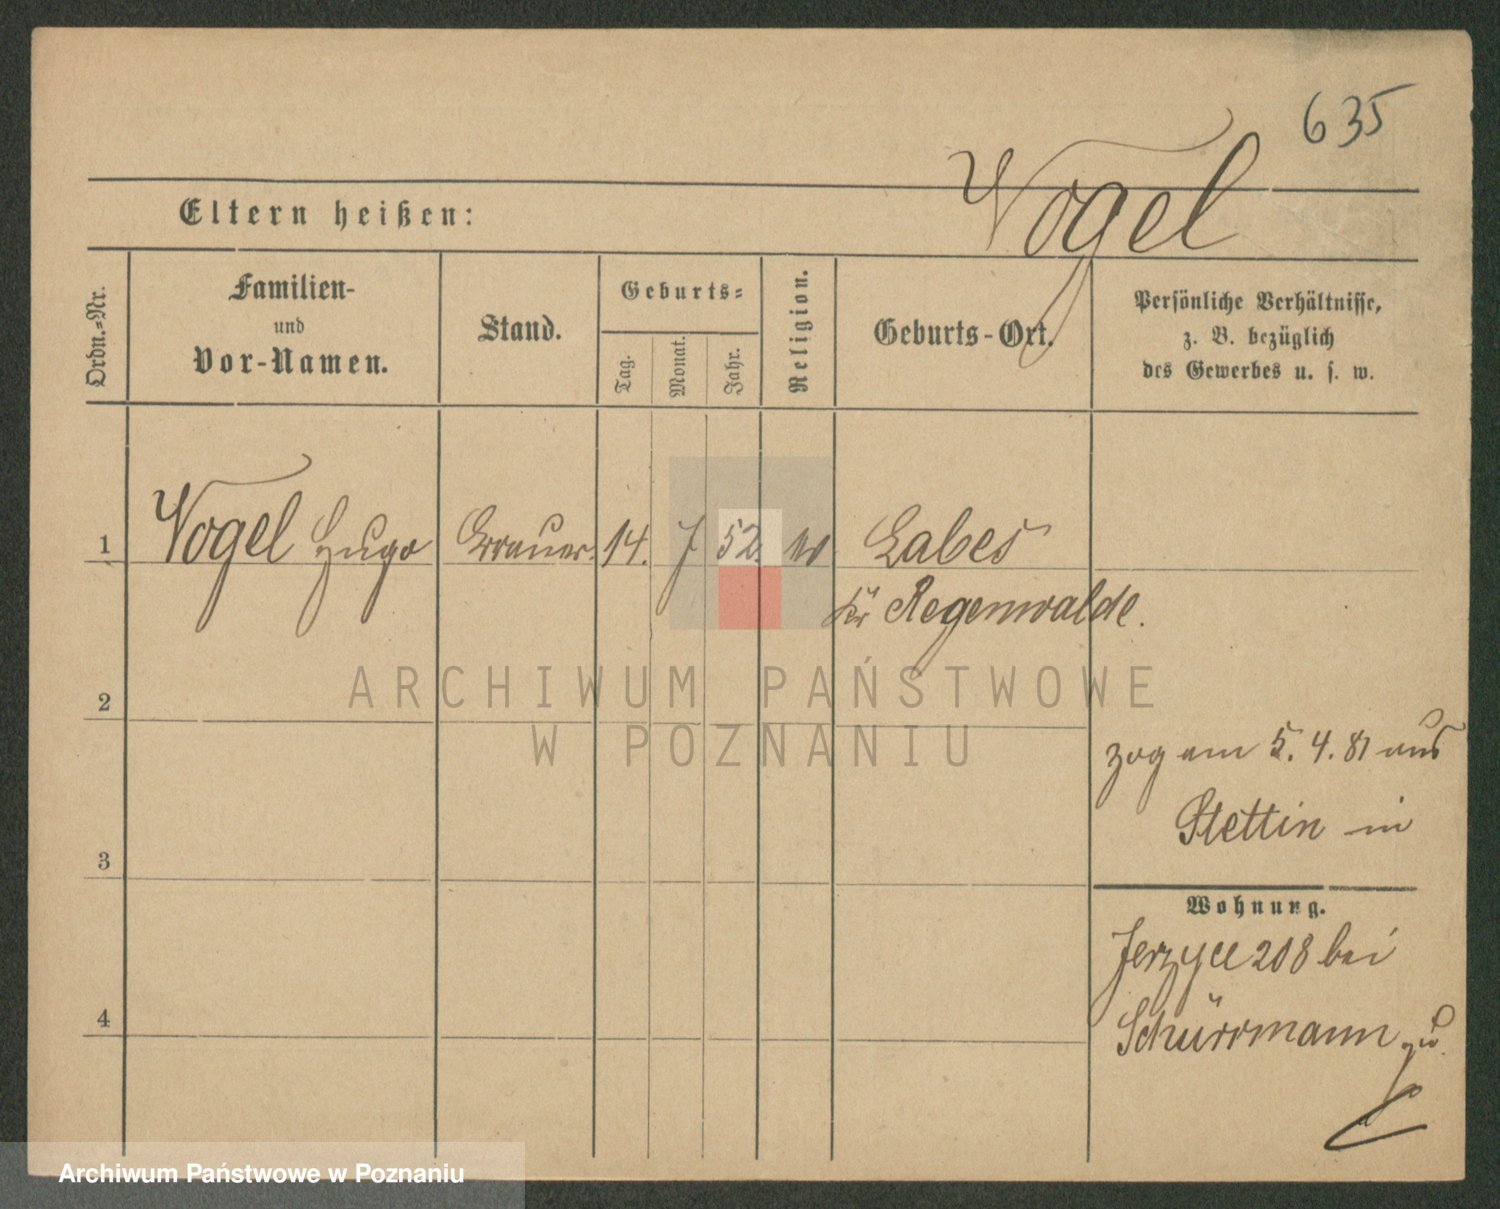 635
Vogel
Eltern heißen:
Ordn.-Nr.
Familien-
und
Vor-Namen.
Stand.
Geburts-
Tag.
Monat.
Jahr.
Religion.
Geburts-Ort.
Persönliche Verhältnisse,
z. B. bezüglich
des Gewerbes u. s. w.
1 Vogel Hugo Brauer 14. 7 52. Labes
Kr Regenwalde.
ARCHIWUM PAŃSTWOWE
W POZNANIU
2
zog am 5. 4. 81 aus
Stettin in
3
Wohnung.
Jerzyce 208 bei
Schürrmann zu.
4
Archiwum Państwowe w Poznaniu